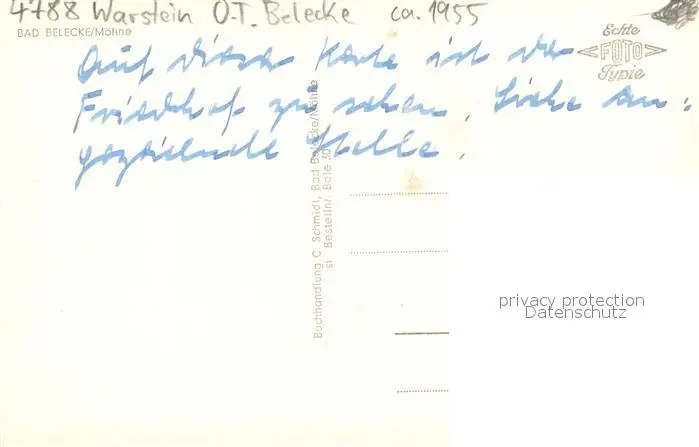 4788 Warstein O.T. Belecke ca. 1955
BAD BELECKE/Möhne
Echte
FOTO
Typie
Auf dieser Karte ist der
Friedhof zu sehen. Siehe an-
gezeichnete Stelle.
Buchhandlung C Schmidt, Bad Belecke/Möhne
si Bestellnr. Bele 30
privacy protection
Datenschutz